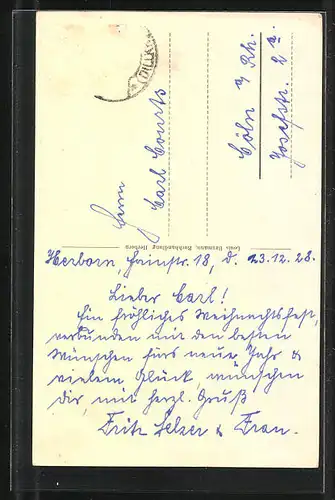 Herrn
Carl Courts
Cöln a Rh.
Josefstr. 2 a.
Louis Baumann, Buchhandlung Herborn
Herborn, Hainstr. 18, d. 23.12.28.
Lieber Carl!
Ein fröhliches Weihnachtsfest,
verbunden mit den besten
Wünschen fürs neue Jahr &
vielem Glück, wünschen
Dir, mit herzl. Gruß
Fritz Selzer & Frau.